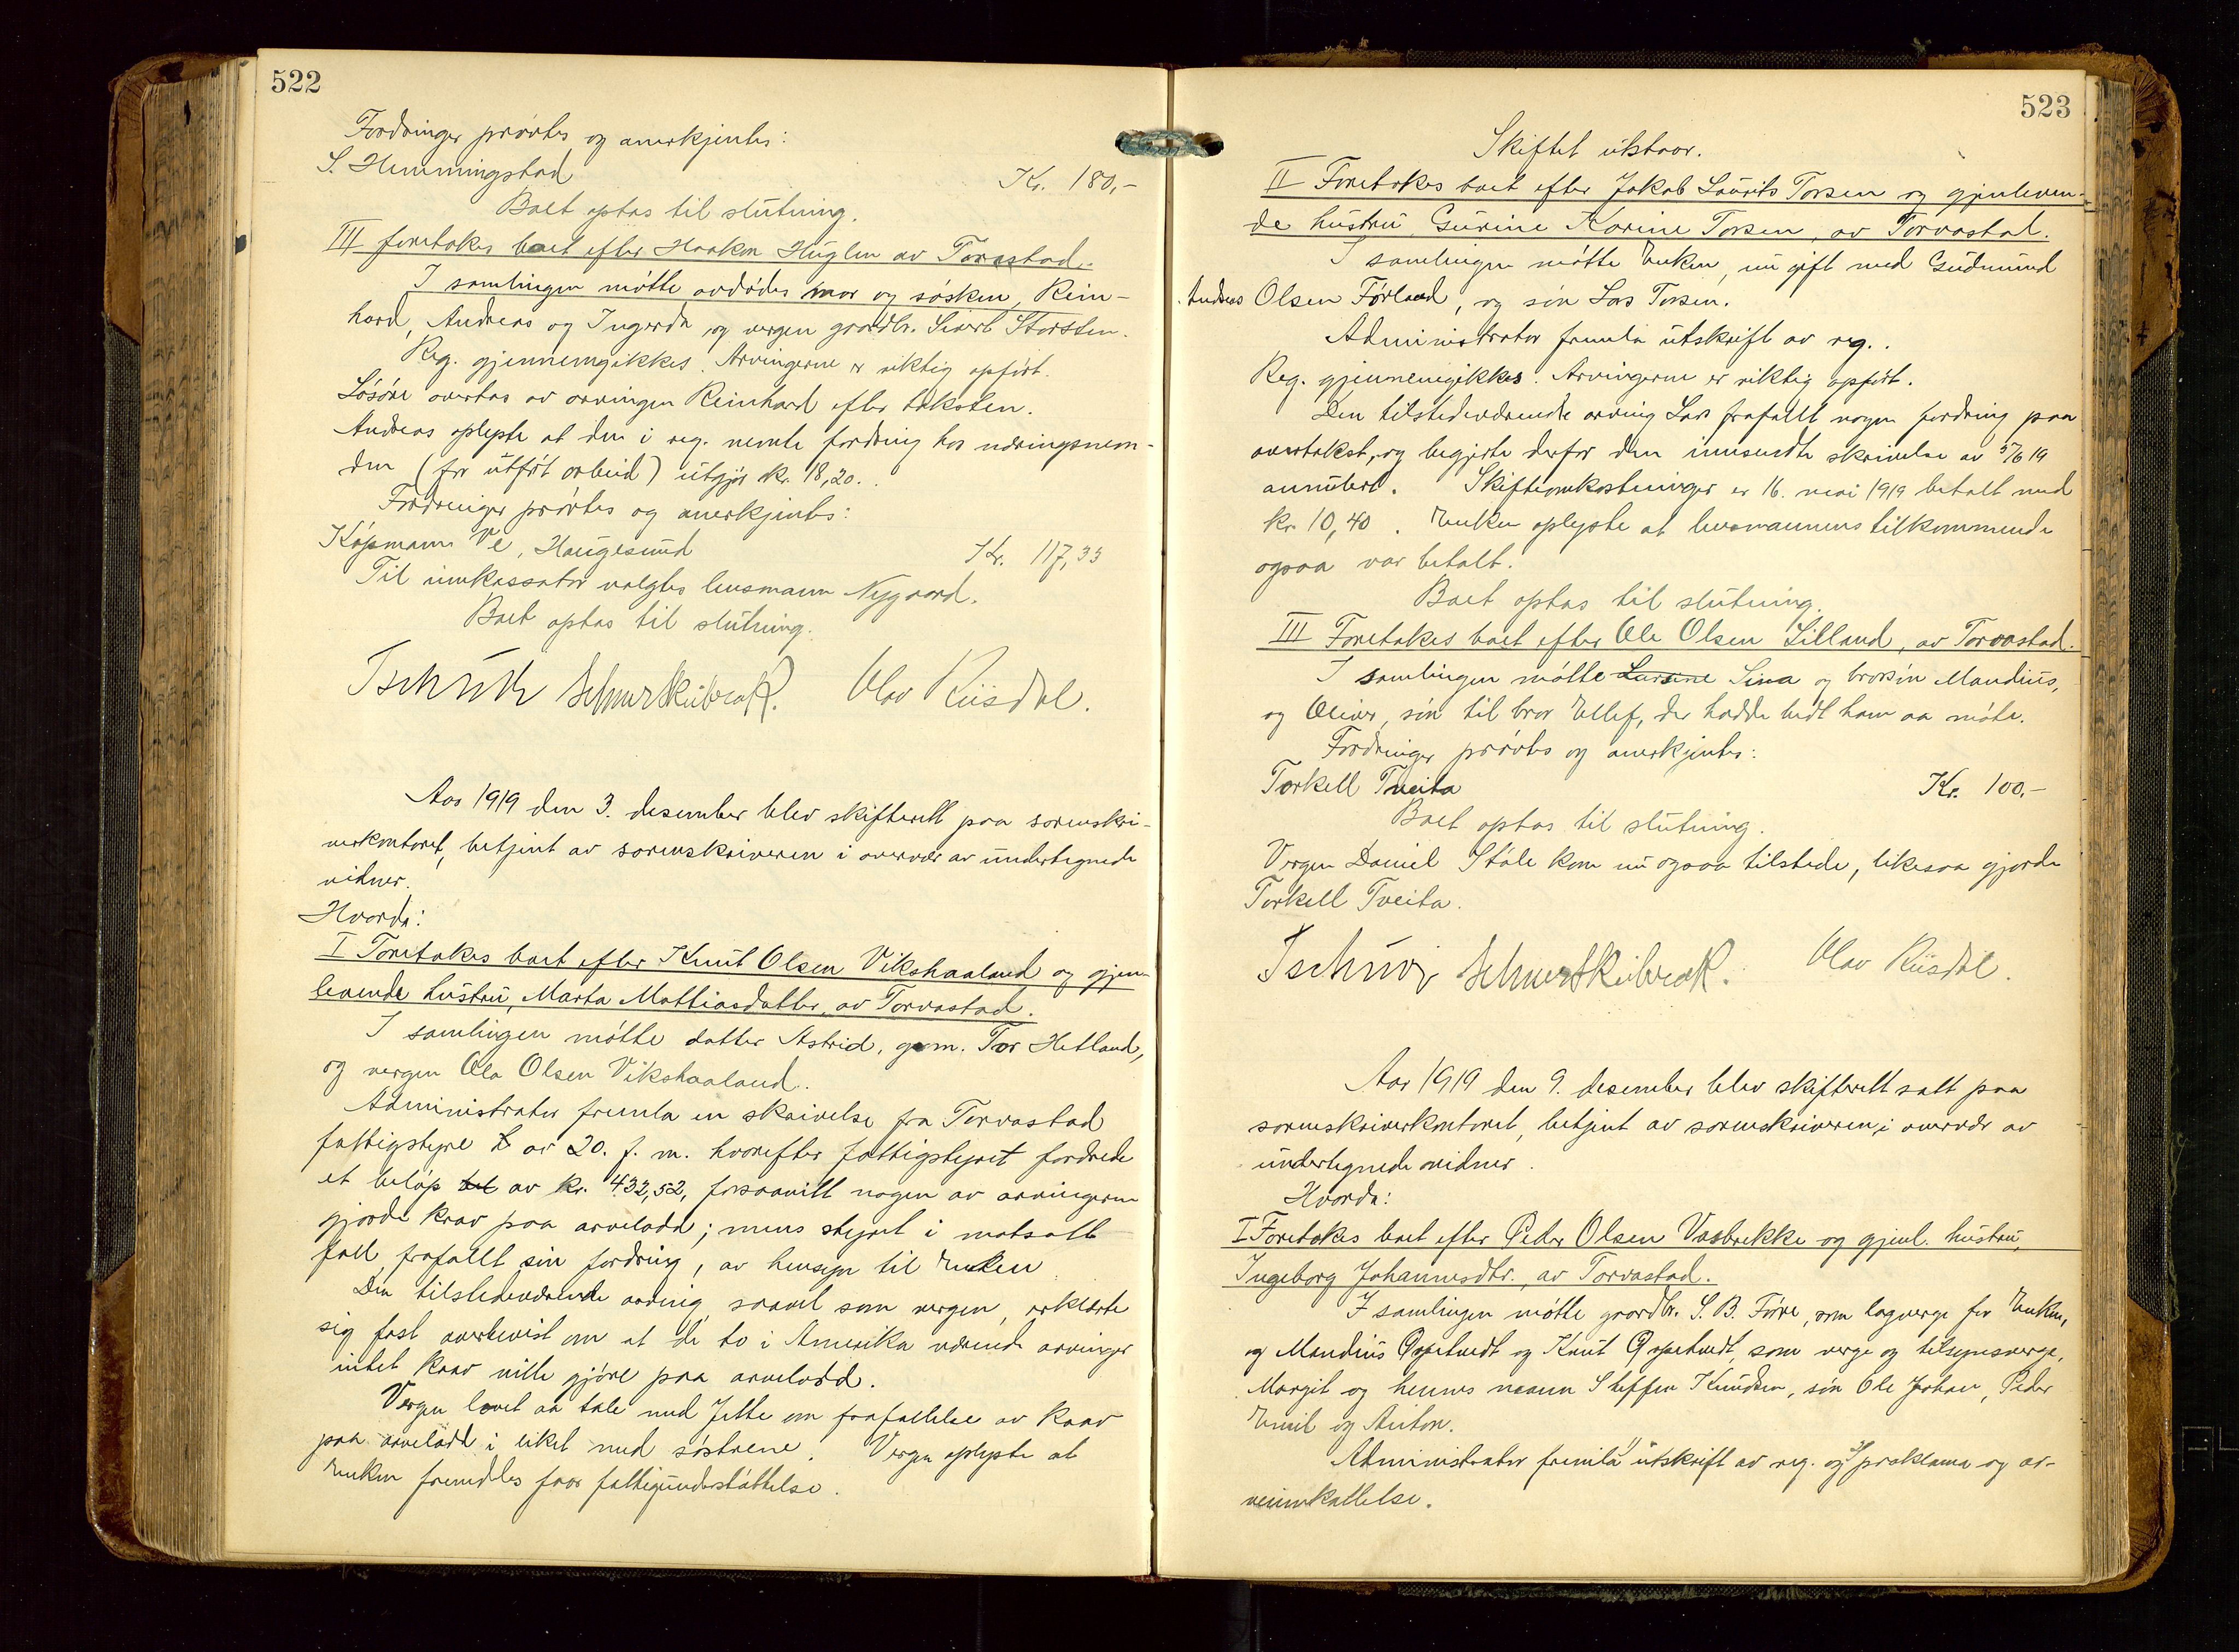 522
Fordringer prøvtes og anerkjentes:
S. Hemmingstad Kr. 180,-
Boet optas til slutning.
III foretakes boet efter Haakon Huglen av Torvastad.
I samlingen møtte avdødes mor og søsken, Rein-
hard, Andreas og Ingerda, og vergen gaardbr. Sivert Storsten.
Reg. gjennemgikkes. Arvingerne er riktig opført.
Løsøre overtas av arvingen Reinhard efter taksten.
Andreas oplyste at den i reg. nevnte fordring hos næringsnem-
den (for utført arbeid) utgjør kr. 18,20.
Fordringer prøvtes og anerkjentes:
Kjøpmann Ve, Haugesund Kr. 117,33
Til innkassator valgtes lensmann Nygaard.
Boet optas til slutning.
Olav Riisdal.
Aar 1919 den 3. desember blev skifterett paa sorenskri-
verkontoret, betjent av sorenskriveren i overvær av undertegnede
vidner.
Hvorda:
I Foretakes boet efter Knut Olsen Vikshaaland og gjen-
levende hustru, Marta Mattiasdatter, av Torvastad.
I samlingen møtte datter Astrid, g. m. Tor Hetland,
og vergen Ola Olsen Vikshaaland.
Administrator fremla en skrivelse fra Torvastad
fattigstyre av 20. f. m. hvorefter fattigstyret fordrede
et beløp tel av kr. 432,52, forsaavitt nogen av arvingerne
gjorde krav paa arvelodd; mens styret i motsatt
fall frafallt sin fordring, av hensyn til Enken.
Den tilstedeværende arving saavel som vergen, erklærte
sig fast overbevist om at de to i Amerika værende arvinger
intet krav ville gjøre paa arvelodd.
Vergen lovet aa tale med Jette om frafallelse av krav
paa arvelodd i likhet med søstrene. Vergen oplyste at
Enken fremdeles faar fattigunderstøttelse.
523
Skiftet utstaar.
II Foretakes boet efter Jakob Laurits Torsen og gjenleven-
de hustru Gurine Karine Torsen, av Torvastad.
I samlingen møtte Enken, nu gift med Gudmund
Andreas Olsen Førland, og søn Lars Torsen.
Administrator fremla utskrift av reg..
Reg. gjennemgikkes. Arvingerne er riktig opført.
Den tilstedeværende arving Lars frafallt nogen fordring paa
overtakst, og begjærte derfor den innsendte skrivelse av 5/6 19
annulert. Skifteomkostninger er 16. mai 1919 betalt med
kr. 10,40. Enken oplyste at lensmannens tilkommende
ogsaa var betalt.
Boet optas til slutning.
III Foretakes boet efter Ole Olsen Lilland, av Torvastad.
I samlingen møtte Laurine Sina og brorsøn Mandius,
og Oliver, søn til bror Ellef, der hadde bedt ham aa møte.
Fordringer prøvtes og anerkjentes:
Torkell Tveita Kr. 100.-
Boet optas til slutning.
Vergen Daniel Ståle kom nu ogsaa tilstede, likesaa gjorde
Torkell Tveita.
Olav Riisdal.
Aar 1919 den 9. desember blev skifterett satt paa
sorenskriverkontoret, betjent av sorenskriveren, i overvær av
undertegnede vidner.
Hvorda:
I Foretakes boet efter Peder Olsen Vasbrekke og gjenl. hustru,
Ingeborg Johannesdtr., av Torvastad.
I samlingen møtte gaardbr. S. B. Førre, som lagverge for Enken,
og Mandius Oppetvedt og Knut Oppetvedt, som verge og tilsynsverge,
Margit og hennes mann Steffen Knudsen, søn Ole Johan, Peder
Emil og Anton.
Administrator fremla 1) utskrift av reg. og 2) proklama og ar-
veinnkallelse.